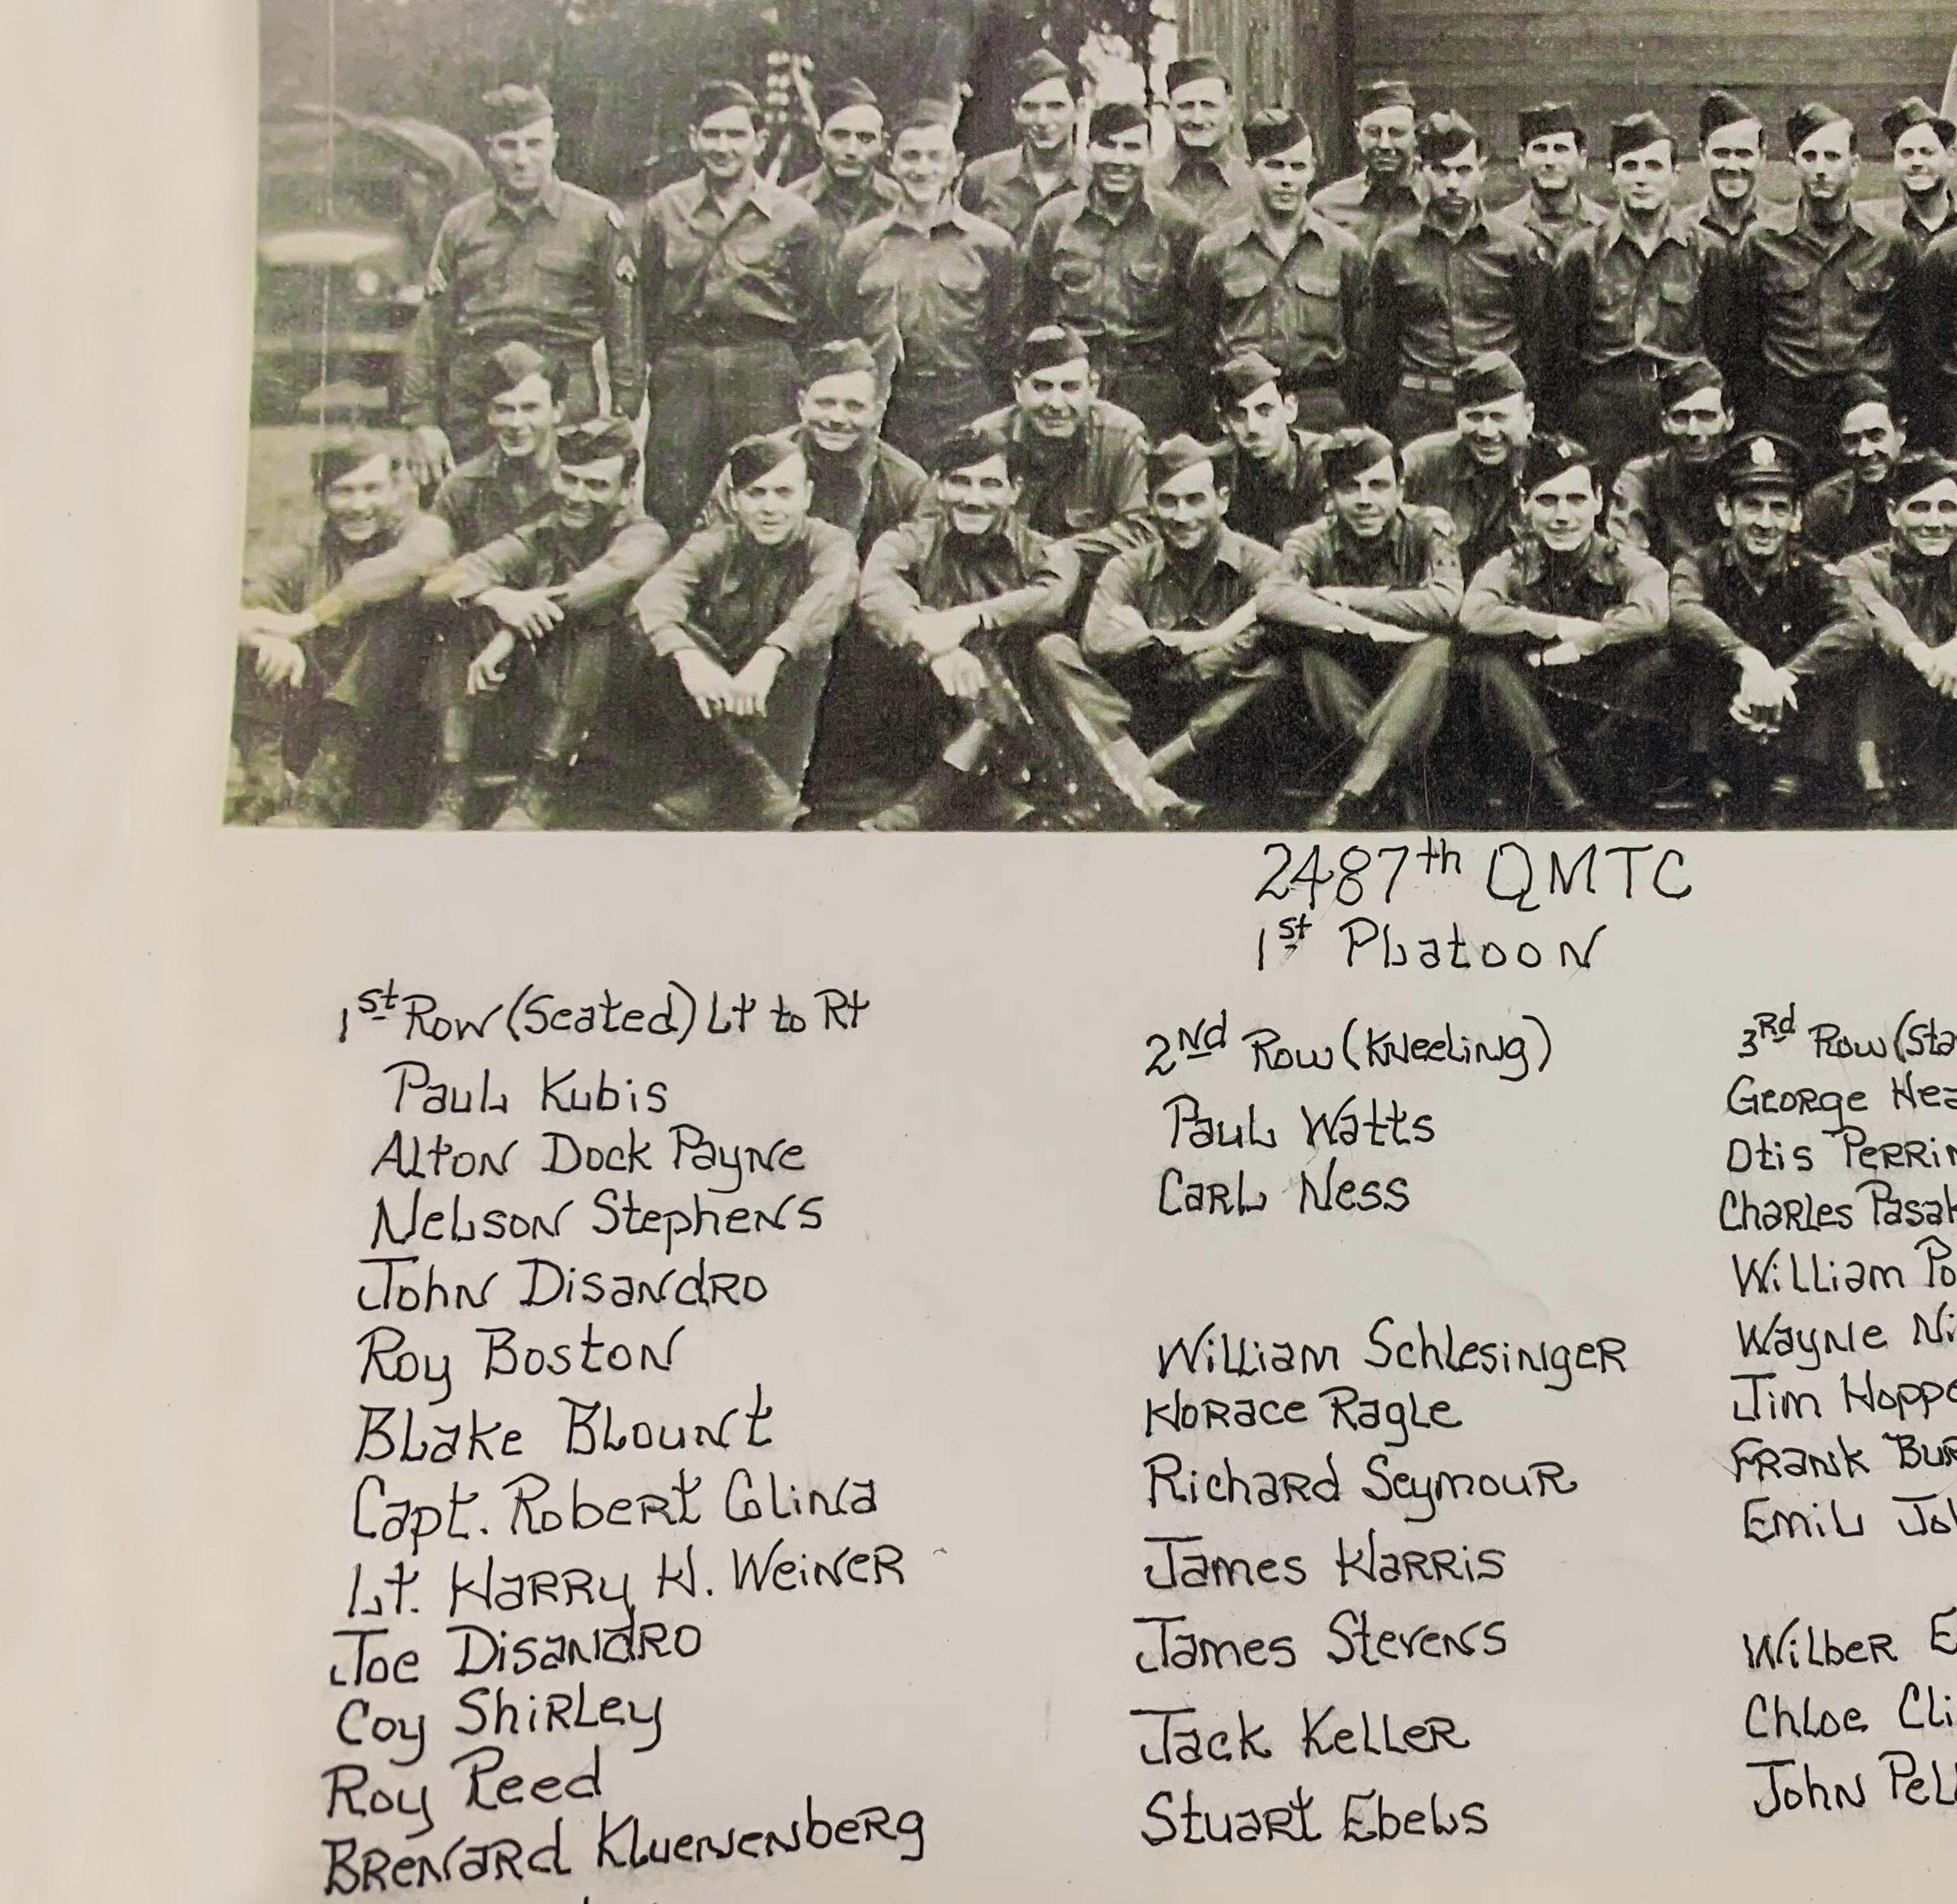 2487th QMTC
1st Platoon
1st Row (Seated) Lt to Rt
Paul Kubis
Alton Dock Payne
Nelson Stephens
John Disandro
Roy Boston
Blake Blount
Capt. Robert Colina
Lt. Harry H. Weiner
Joe Disandro
Coy Shirley
Roy Reed
Brenard Kluenenberg
2Nd Row (Kneeling)
Paul Watts
Carl Ness
William Schlesinger
Horace Ragle
Richard Seymour
James Harris
James Stevens
Jack Keller
Stuart Ebels
3Rd Row (Sta
George Hea
Otis Perrin
Charles Pasak
William Po
Wayne Ni
Jim Hoppe
Frank Bur
Emil Joh
Wilber E
Chloe Cli
John Pell